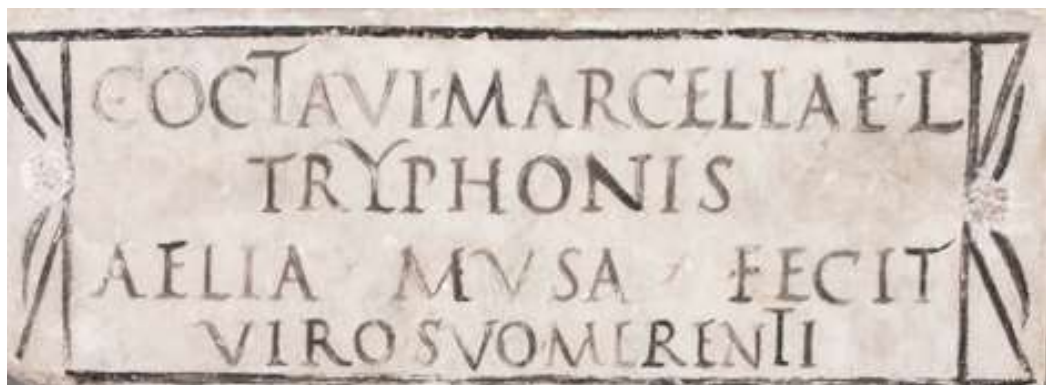 C·OCTAVI·MARCELLAE·L
TRYPHONIS
AELIA · MVSA · FECIT
VIRO SVO MERENTI